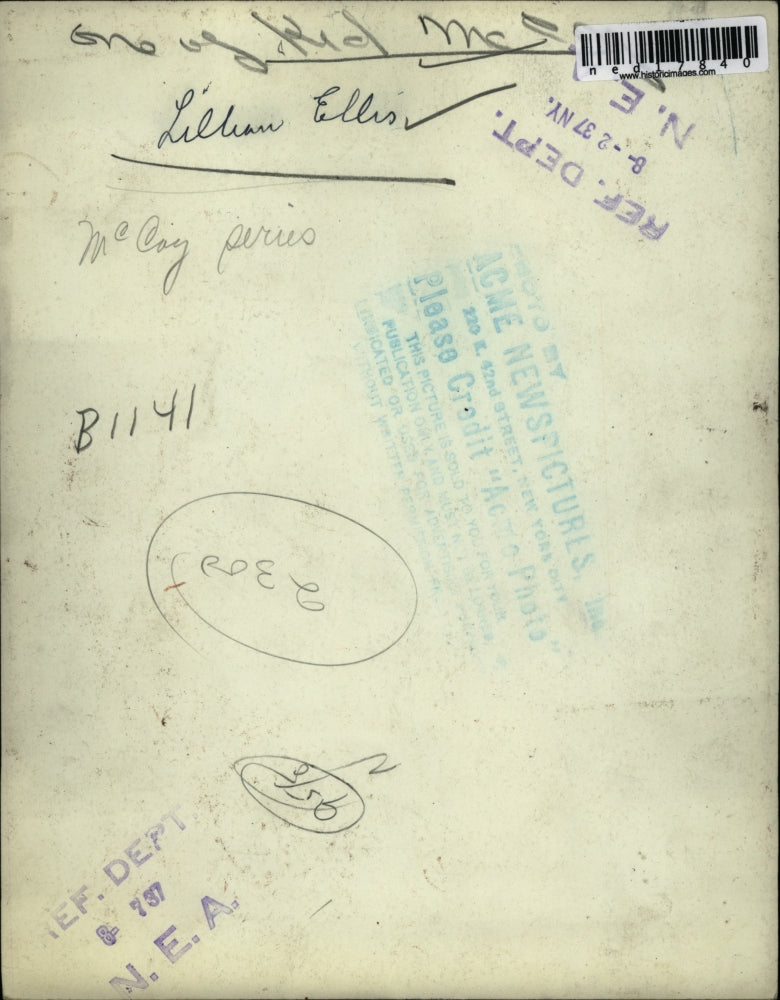 one of Kid
ned17840
www.historicimages.com
Lillian Ellis
REF. DEPT.
8-2 37 NY.
N. E.
McCoy series
PHOTO BY
ACME NEWSPICTURES, Inc
220 E. 42nd STREET, NEW YORK CITY
Please Credit "Acme Photo"
THIS PICTURE IS SOLD TO YOU FOR YOUR
PUBLICATION ONLY AND MUST
OR USED FOR
WITHOUT WRITTEN
B1141
REF. DEPT.
8- 737
N. E. A.